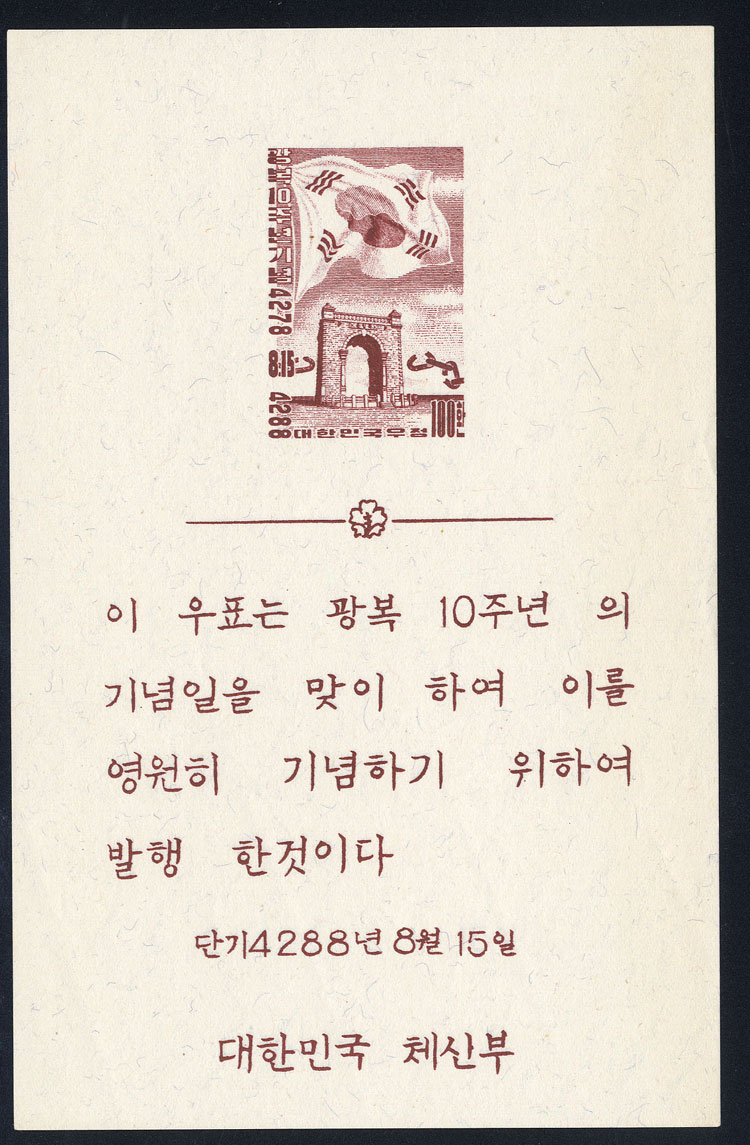 광복10주년기념
4278
8.15
4288
대한민국우정
100환
이 우표는 광복 10주년 의
기념일을 맞이 하여 이를
영원히 기념하기 위하여
발행 한것이다
단기4288년 8월 15일
대한민국 체신부